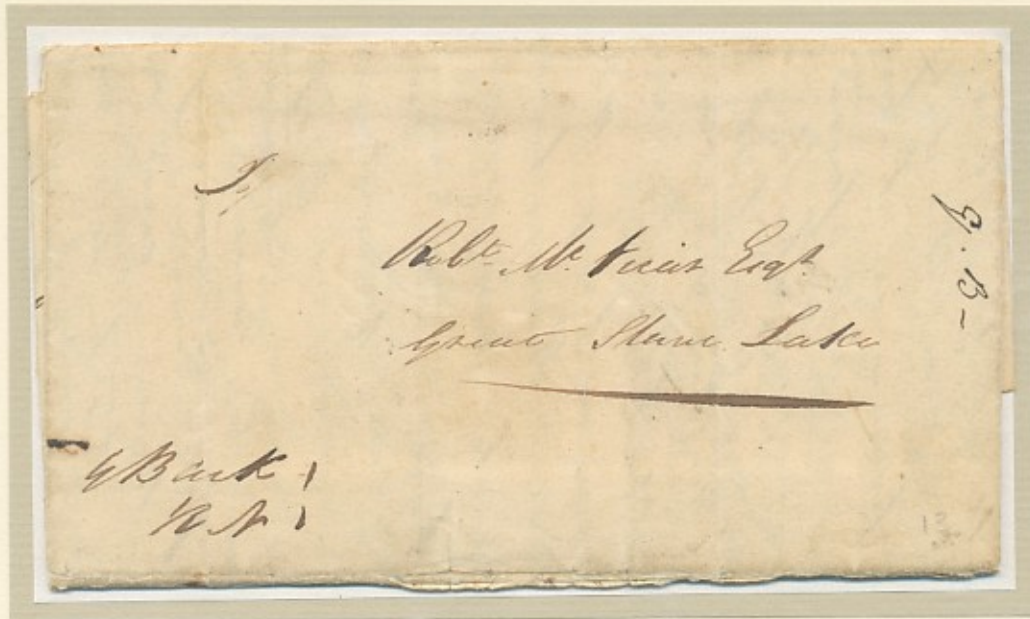 To
Robt. Mc. Vicar Esqr.
Great Slave Lake
GBack
RN
G. B-